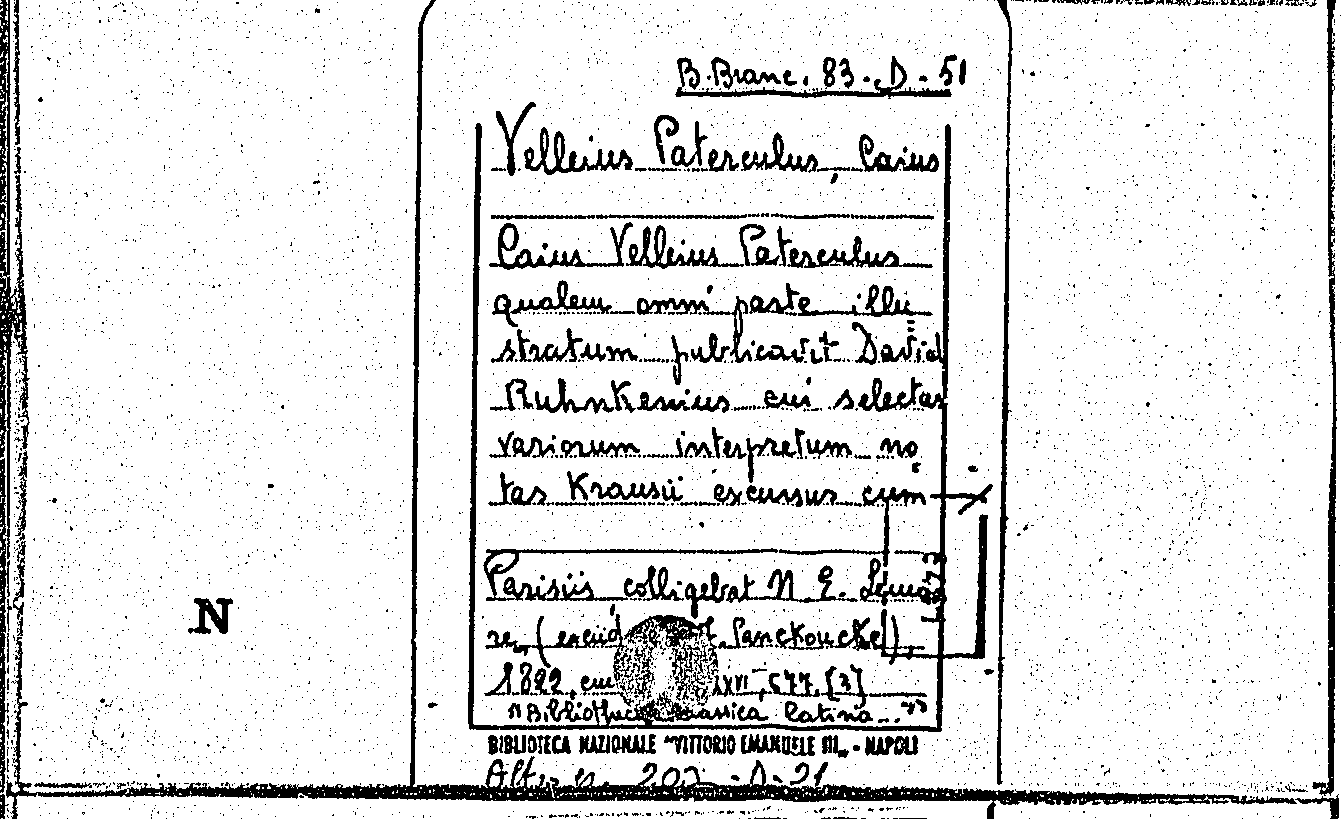 B. Branc. 83 - D - 51
Velleius Paterculus, Caius
Caius Velleius Paterculus
qualem omni parte illu
stratum publicavit David
Ruhnkenius cui selectas
variorum interpretum no
tas Krausii excursus cum
Parisiis, colligebat N. E. Lemai
re, (excud Panckoucke),
1822, cm LXXVI, 677, [3]
"Bibliotheca classica latina..."
BIBLIOTECA NAZIONALE "VITTORIO EMANUELE III" - NAPOLI
Altr. es. 202 - D - 21
N